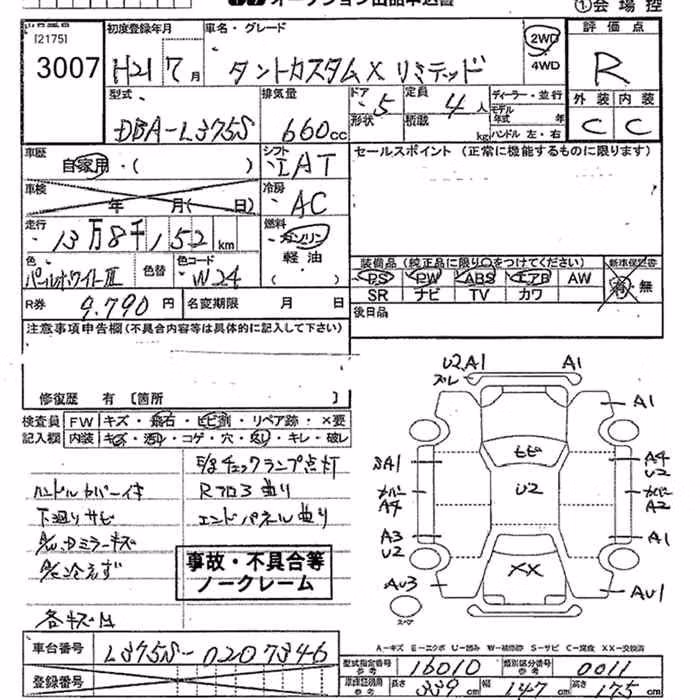 オークション出品申込書
①会場控
[2175]
3007
初度登録年月
H21 7月
車名・グレード
タントカスタムX リミテッド
2WD
4WD
評価点
R
型式
DBA-L375S
排気量
660cc
ドア 5
形状
定員 4人
積載 kg
ディーラー・並行
モデル年式 年
ハンドル 左・右
外装 内装
C C
車歴
自家用・( )
シフト
IAT
セールスポイント (正常に機能するものに限ります)
車検
年 月( 日)
冷房
AC
走行
13万8千152km
燃料
ガソリン
軽油
色
パールホワイトIII
色替
色コード
W24
装備品 (純正品に限り○をつけてください)
新車保証書
PS PW ABS エアB AW
有・無
SR ナビ TV カワ
R券 9.790円
名変期限 月 日
後日品
注意事項申告欄(不具合内容等は具体的に記入して下さい)
修復歴 有 [箇所 ]
検査員記入欄
FW キズ・飛石・ヒビ割・リペア跡・×要
内装 キズ・汚れ・コゲ・穴・・キレ・破レ
チェックランプ点灯
ハンドルカバーイキ
Rフロア曲り
下廻りサビ
エンドパネル曲り
ミラーキズ
A/C冷えず
事故・不具合等
ノークレーム
各キズ凹
U2.A1
ズレ
A1
A1
ヒビ
A4
U2
U2
カバー
A4
カバー
A2
A3
U2
A1
XX
AU3
AU1
スペアー
A-キズ E-エクボ U-凹み W-補修跡 S-サビ C-腐食 XX-交換済
車台番号
L375S-0207346
登録番号
型式指定番号 参考 16010
類別区分番号 参考 0011
車庫証明用 参考
長さ 339cm 幅 147cm 高さ 175cm